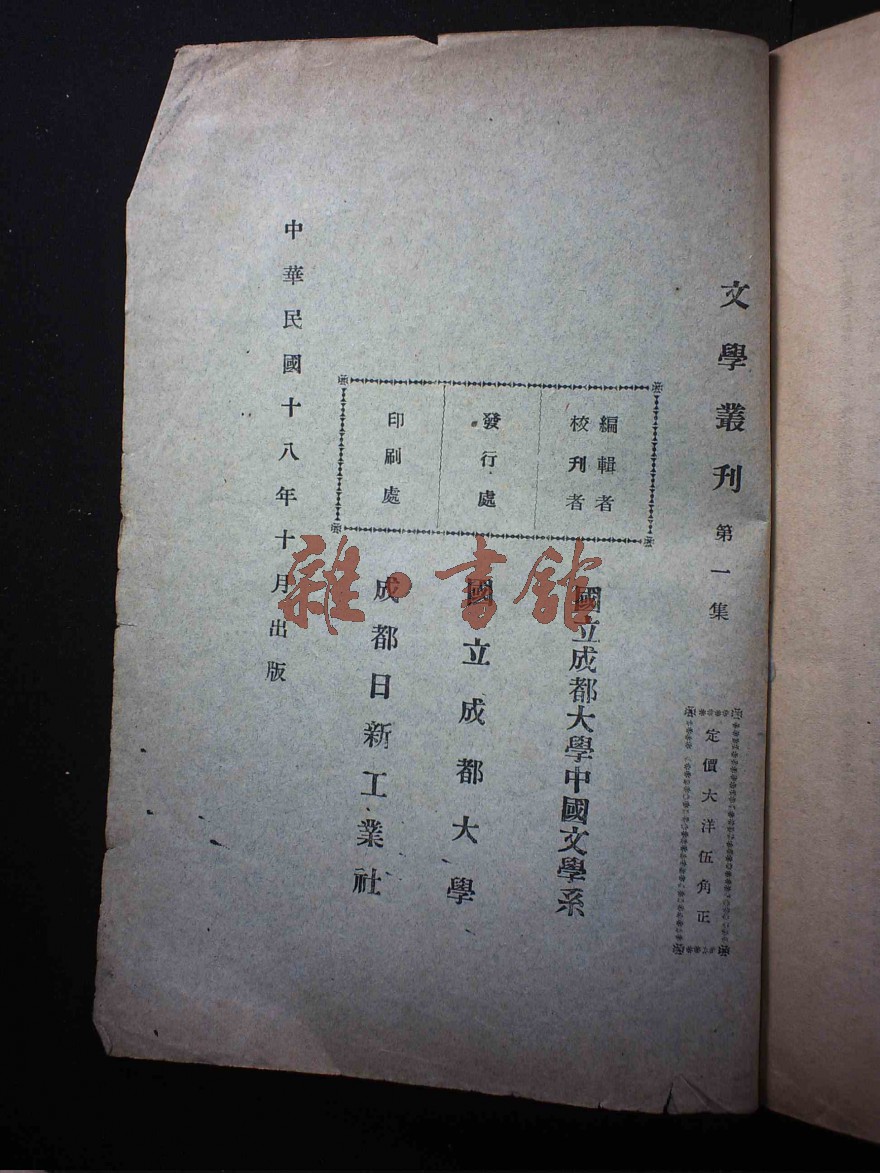 文學叢刊 第一集
定價大洋伍角正
編輯者
校刊者
國立成都大學中國文學系
發行處
國立成都大學
印刷處
成都日新工業社
中華民國十八年十月出版
雜·書館